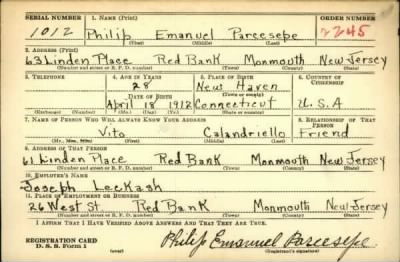 SERIAL NUMBER 1. NAME (Print) ORDER NUMBER
1012 Philip Emanuel Parcesepe 2245
(First) (Middle) (Last)
2. ADDRESS (Print)
63 Linden Place Red Bank Monmouth New Jersey
(Number and street or R. F. D. number) (Town) (County) (State)
3. TELEPHONE 4. AGE IN YEARS 5. PLACE OF BIRTH 6. COUNTRY OF CITIZENSHIP
28 New Haven
DATE OF BIRTH (Town or county)
April 18 1912 Connecticut U.S.A
(Mo.) (Day) (Yr.) (State or country)
7. NAME OF PERSON WHO WILL ALWAYS KNOW YOUR ADDRESS 8. RELATIONSHIP OF THAT PERSON
Vito Calandriello Friend
(Mr., Mrs., Miss) (First) (Middle) (Last)
9. ADDRESS OF THAT PERSON
61 Linden Place Red Bank Monmouth New Jersey
(Number and street or R. F. D. number) (Town) (County) (State)
10. EMPLOYER'S NAME
Joseph Leckash
11. PLACE OF EMPLOYMENT OR BUSINESS
26 West St. Red Bank Monmouth New Jersey
(Number and street or R. F. D. number) (Town) (County) (State)
I AFFIRM THAT I HAVE VERIFIED ABOVE ANSWERS AND THAT THEY ARE TRUE.
REGISTRATION CARD
D. S. S. Form 1 Philip Emanuel Parcesepe
(Registrant's signature)